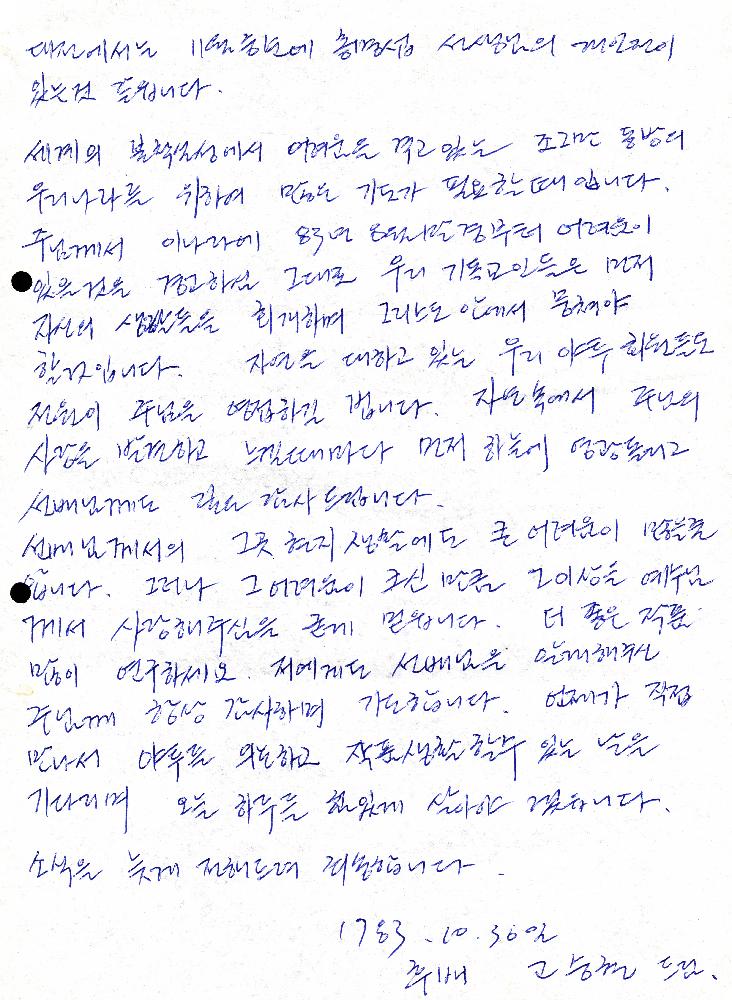 대전에서는 11월 중순에 홍명섭 선생님의 개인전이
있는것 들립니다.
세계의 불확실성에서 어려운을 격고있는 조그만 동방의
우리나라를 위하여 많은 기도가 필요할때 입니다.
주님께서 이나라에 83년 8월말경부터 어려운이
있을것을 경고하신 그대로 우리 기독교인들은 먼저
자신의 생활들을 회개하며 그리스도 안에서 뭉쳐야
할것입니다. 자연을 대하고 있는 우리 야투 회원들도
전원이 주님을 영접하길 빕니다. 자연속에서 주님의
사랑을 발견하고 느낄때마다 먼저 하늘에 영광돌리고
선배님께도 감사드립니다.
선배님께서의 그곳 현지생활에도 큰 어려운이 많을줄
압니다. 그러나 그어려운이 크신 만큼 그이상을 예수님
께서 사랑해주심을 굳게 믿읍니다. 더 좋은 작품
많이 연구하세요. 저에게도 선배님을 인해주신
주님께 항상 감사하며 기도합니다. 언제가 직접
만나서 야투를 의논하고 작품생활할수 있는 날을
기다리며 오늘 하루를 힘있게 살아야 겠습니다.
소식을 늦게 전해드려 죄송합니다.
1983.10.30일
후배 고승현 드림.